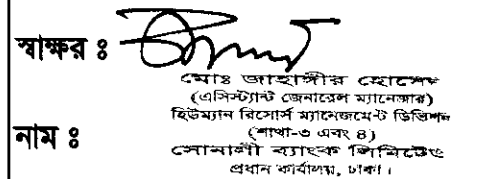 স্বাক্ষর ঃ
মোঃ জাহাঙ্গীর হোসেন
(এসিস্ট্যান্ট জেনারেল ম্যানেজার)
হিউম্যান রিসোর্স ম্যানেজমেন্ট ডিভিশন
(শাখা-৩ এবং ৪)
নাম ঃ
সোনালী ব্যাংক লিমিটেড
প্রধান কার্যালয়, ঢাকা।